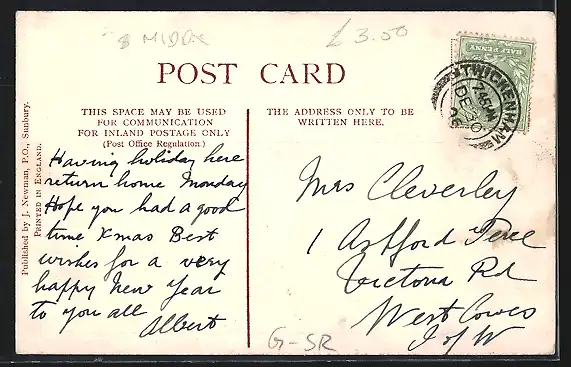 8 MIDDX
£3.00
POST CARD
THIS SPACE MAY BE USED
FOR COMMUNICATION
FOR INLAND POSTAGE ONLY
(Post Office Regulation.)
THE ADDRESS ONLY TO BE
WRITTEN HERE.
HALF PENNY
TWICKENHAM
7.45 PM
DE 30
Published by J. Newman, P.O., Sunbury.
PRINTED IN ENGLAND.
Having holiday here
return home Monday
Hope you had a good
time Xmas Best
wishes for a very
happy New Year
to you all
Albert
Mrs Cleverley
1 Ashford Terr
Victoria Rd
West Cowes
I of W
G-SR